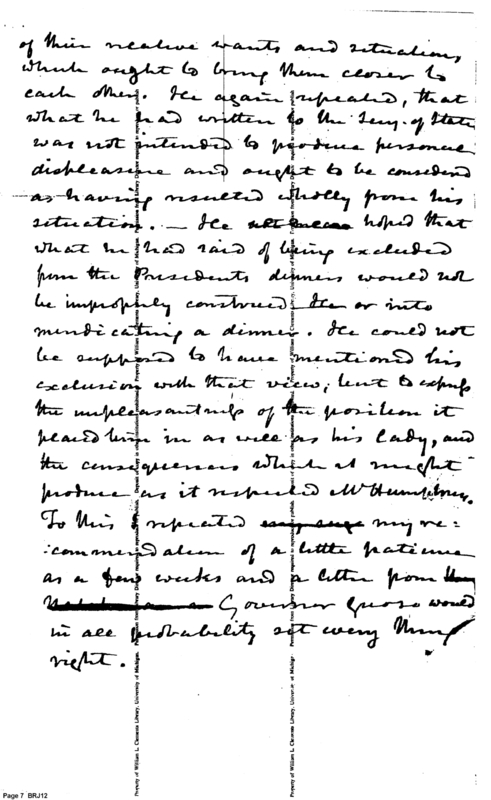 of their relative wants and situation,
which ought to bring them closer to
each other. He again repeated, that
what he had written to the Secy. of State
was not intended to produce personal
displeasure and ought to be considered
as having resulted wholly from his
situation. — He hoped that
what he had said of being excluded
from the Presidents dinners would not
be improperly construed He or into
mendicating a dinner. He could not
be supposed to have mentioned his
exclusion with that view; but to express
the unpleasantness of the position it
placed him in as well as his Lady, and
the consequences which it might
produce as it respected Mr Humphreys.
To this I repeated my re=
=commendation of a little patience
as a few weeks and a letter from
Governor would
in all probability set every thing
right.
Property of William L. Clements Library, University of Michigan.
Property of William L. Clements Library, University of Michigan.
Page 7 BRJ12